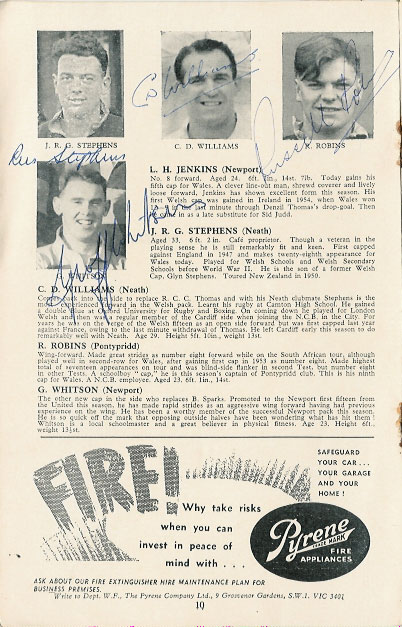 J. R. G. STEPHENS
C. D. WILLIAMS
R. ROBINS
Rees Stephens
CD Williams
Russell Robins
L. H. JENKINS (Newport)
No. 8 forward. Aged 24. 6ft. 1in., 14st. 7lb. Today gains his
fifth cap for Wales. A clever line-out man, shrewd coverer and lively
loose forward, Jenkins has shown excellent form this season. His
first Welsh cap was gained in Ireland in 1954, when Wales won
minute through Denzil Thomas's drop-goal. Then
in as a late substitute for Sid Judd.
J. R. G. STEPHENS (Neath)
Aged 33, 6 ft. 2 in. Café proprietor. Though a veteran in the
playing sense he is still remarkably fit and keen. First capped
against England in 1947 and makes twenty-eighth appearance for
Wales today. Played for Welsh Schools and Welsh Secondary
Schools before World War II. He is the son of a former Welsh
Cap, Glyn Stephens. Toured New Zealand in 1950.
C. D. WILLIAMS (Neath)
Comes back into the side to replace R. C. C. Thomas and with his Neath clubmate Stephens is the
most experienced forward in the Welsh pack. Learnt his rugby at Canton High School. He gained
a double Blue at Oxford University for Rugby and Boxing. On coming down he played for London
Welsh and then was a regular member of the Cardiff side when joining the N.C.B. in the City. For
years he was on the verge of the Welsh fifteen as an open side forward but was first capped last year
against France, owing to the last minute withdrawal of Thomas. He left Cardiff early this season to do
remarkably well with Neath. Age 29. Height 5ft. 10in., weight 13st.
R. ROBINS (Pontypridd)
Wing-forward. Made great strides as number eight forward while on the South African tour, although
played well in second-row for Wales, after gaining first cap in 1953 as number eight. Made highest
total of seventeen appearances on tour and was blind-side flanker in second Test, but number eight
in other Tests. A schoolboy "cap," he is this season's captain of Pontypridd club. This is his ninth
cap for Wales. A N.C.B. employee. Aged 23. 6ft. 1in., 14st.
G. WHITSON (Newport)
The other new cap in the side who replaces B. Sparks. Promoted to the Newport first fifteen from
the United this season, he has made rapid strides as an aggressive wing forward having had previous
experience on the wing. He has been a worthy member of the successful Newport pack this season.
He is so quick off the mark that opposing outside halves have been wondering what has hit them!
Whitson is a local schoolmaster and a great believer in physical fitness. Age 23. Height 6ft.,
weight 13½st.
FIRE!
SAFEGUARD
YOUR CAR...
YOUR GARAGE
AND YOUR
HOME!
Why take risks
when you can
invest in peace of
mind with . . .
Pyrene
TRADE MARK
FIRE
APPLIANCES
ASK ABOUT OUR FIRE EXTINGUISHER HIRE MAINTENANCE PLAN FOR
BUSINESS PREMISES.
Write to Dept. W.F., The Pyrene Company Ltd., 9 Grosvenor Gardens, S.W.1. VIC 3401
10